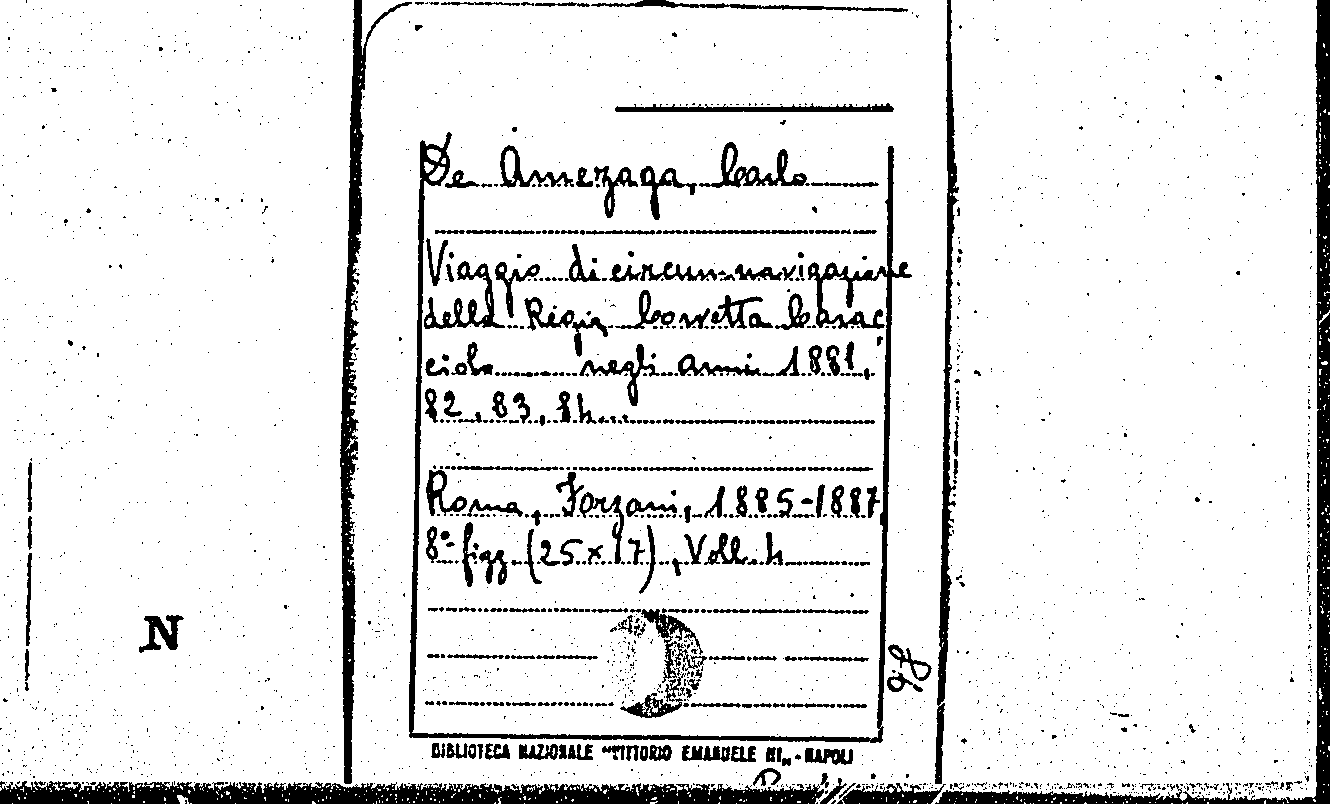 De Amezaga, Carlo
Viaggio di circumnavigazione
della Regia Corvetta Carac
ciolo ..... negli anni 1881,
82, 83, 84...
Roma, Forzani, 1885-1887,
8°- figg. (25×17), Voll. 4
N
BIBLIOTECA NAZIONALE "VITTORIO EMANUELE III„ - NAPOLI